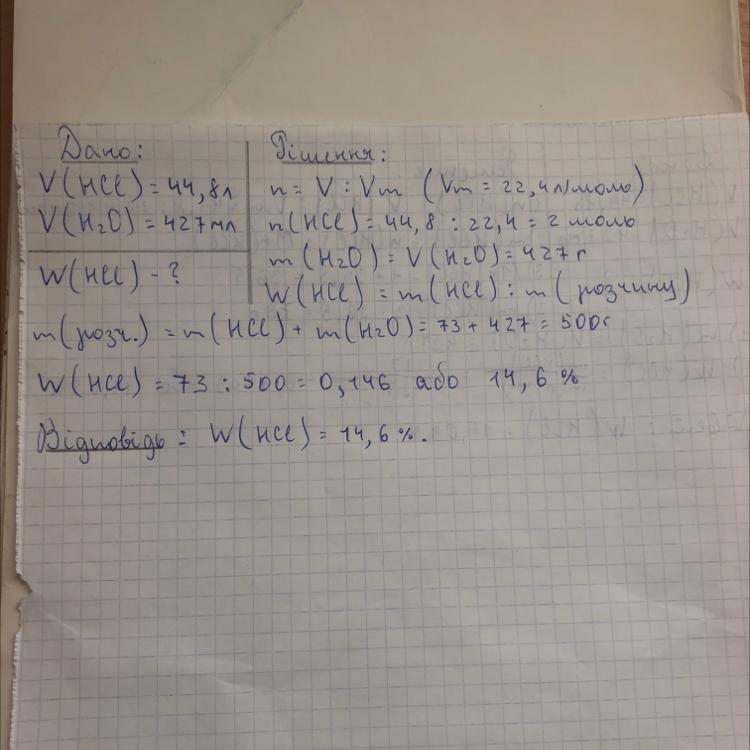 Дано:
V(HCl) = 44,8л
V(H₂O) = 427мл
W(HCl) - ?
Рішення:
n = V : Vm (Vm = 22,4л/моль)
n(HCl) = 44,8 : 22,4 = 2 моль
m(H₂O) = V(H₂O) = 427г
W(HCl) = m(HCl) : m(розчину)
m(розч.) = m(HCl) + m(H₂O) = 73 + 427 = 500г
W(HCl) = 73 : 500 = 0,146 або 14,6 %
Відповідь : W(HCl) = 14,6 %.